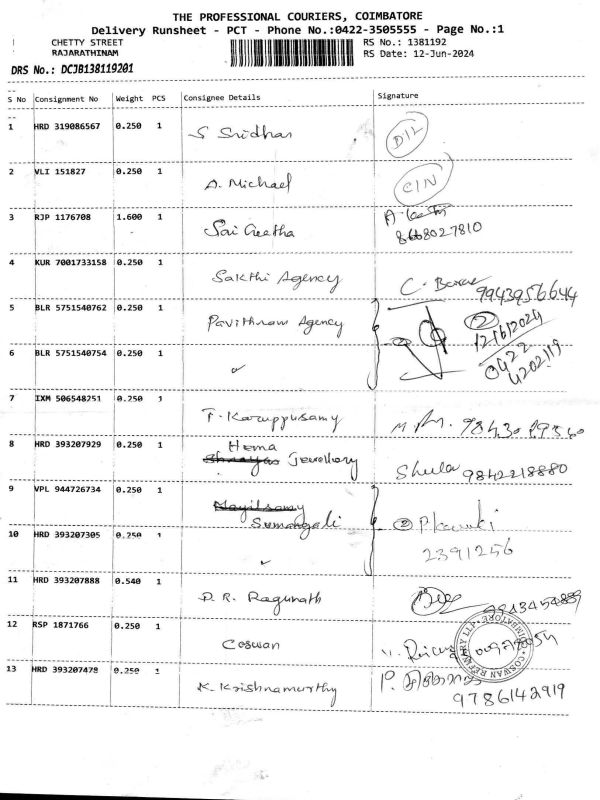 THE PROFESSIONAL COURIERS, COIMBATORE
Delivery Runsheet - PCT - Phone No.:0422-3505555 - Page No.:1
CHETTY STREET RS No.: 1381192
RAJARATHINAM RS Date: 12-Jun-2024
DRS No.: DCJB138119201
S No Consignment No Weight PCS Consignee Details Signature
1 HRD 319086567 0.250 1 S Sridhar DIL
2 VLI 151827 0.250 1 A. Michael CIN
3 RJP 1176708 1.600 1 Sai Geetha
8668027810
4 KUR 7001733158 0.250 1 Sakthi Agency 9943956644
5 BLR 5751540762 0.250 1 Pavithram Agency 2
12/6/2024
6 BLR 5751540754 0.250 1 ✓ 0422
4202119
7 IXM 506548251 0.250 1 T. Karuppusamy
8 HRD 393207929 0.250 1 Hema Jewellery Shula 9842218880
9 VPL 944726734 0.250 1 Mayilsamy
Sumangali 2
10 HRD 393207305 0.250 1 ✓ 2391256
11 HRD 393207888 0.540 1 D. R. Ragunath
12 RSP 1871766 0.250 1 Coswan
COSWAN REFINERY LLP. COIMBATORE
13 HRD 393207478 0.250 1 K. Krishnamurthy
9786142919